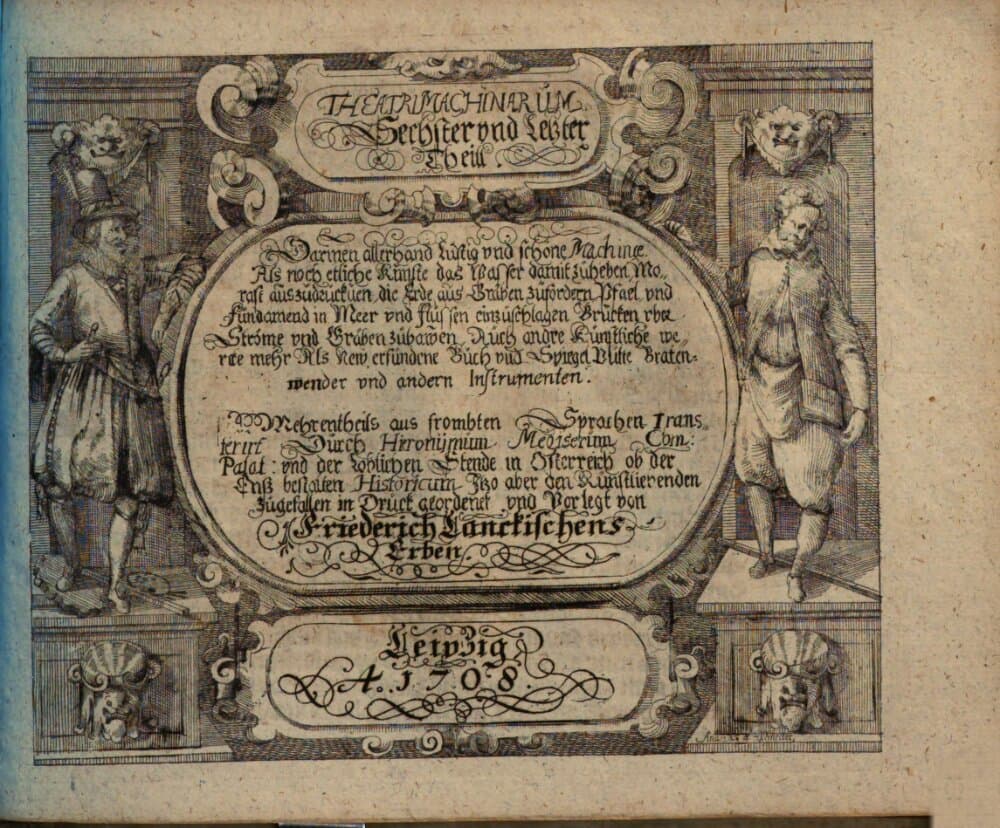 THEATRI MACHINARUM
Sechster vnd Letzter
Theill
Darinen allerhand Lustig vnd schone Machine
Als noch etliche Künste das Wasser damit zuheben, Mo-
rast auszudrucken, die Erde aus Gräben zufördern Pfael vnd
fundament in Meer vnd flussen einzuschlagen Brucken vber
Ströme vnd Gräben zübawen Auch andre Künstliche we-
rcke mehr Als New erfundene Büch vnd Spiegel Braten-
wender vnd andern Instrumenten.
Mehrentheils aus frombten Sprachen Trans
ferirt Durch Hieronÿmum Megiserum Com:
Palat: vnd der Löblichen Stende in Osterreich ob der
Enß bestalten Historicum Itzo aber den Kunstlierenden
zugefallen in Druck geordenet vnd Vorlegt von
Friederich Lanckischens
Erben.
Leipzig
A. 1708.